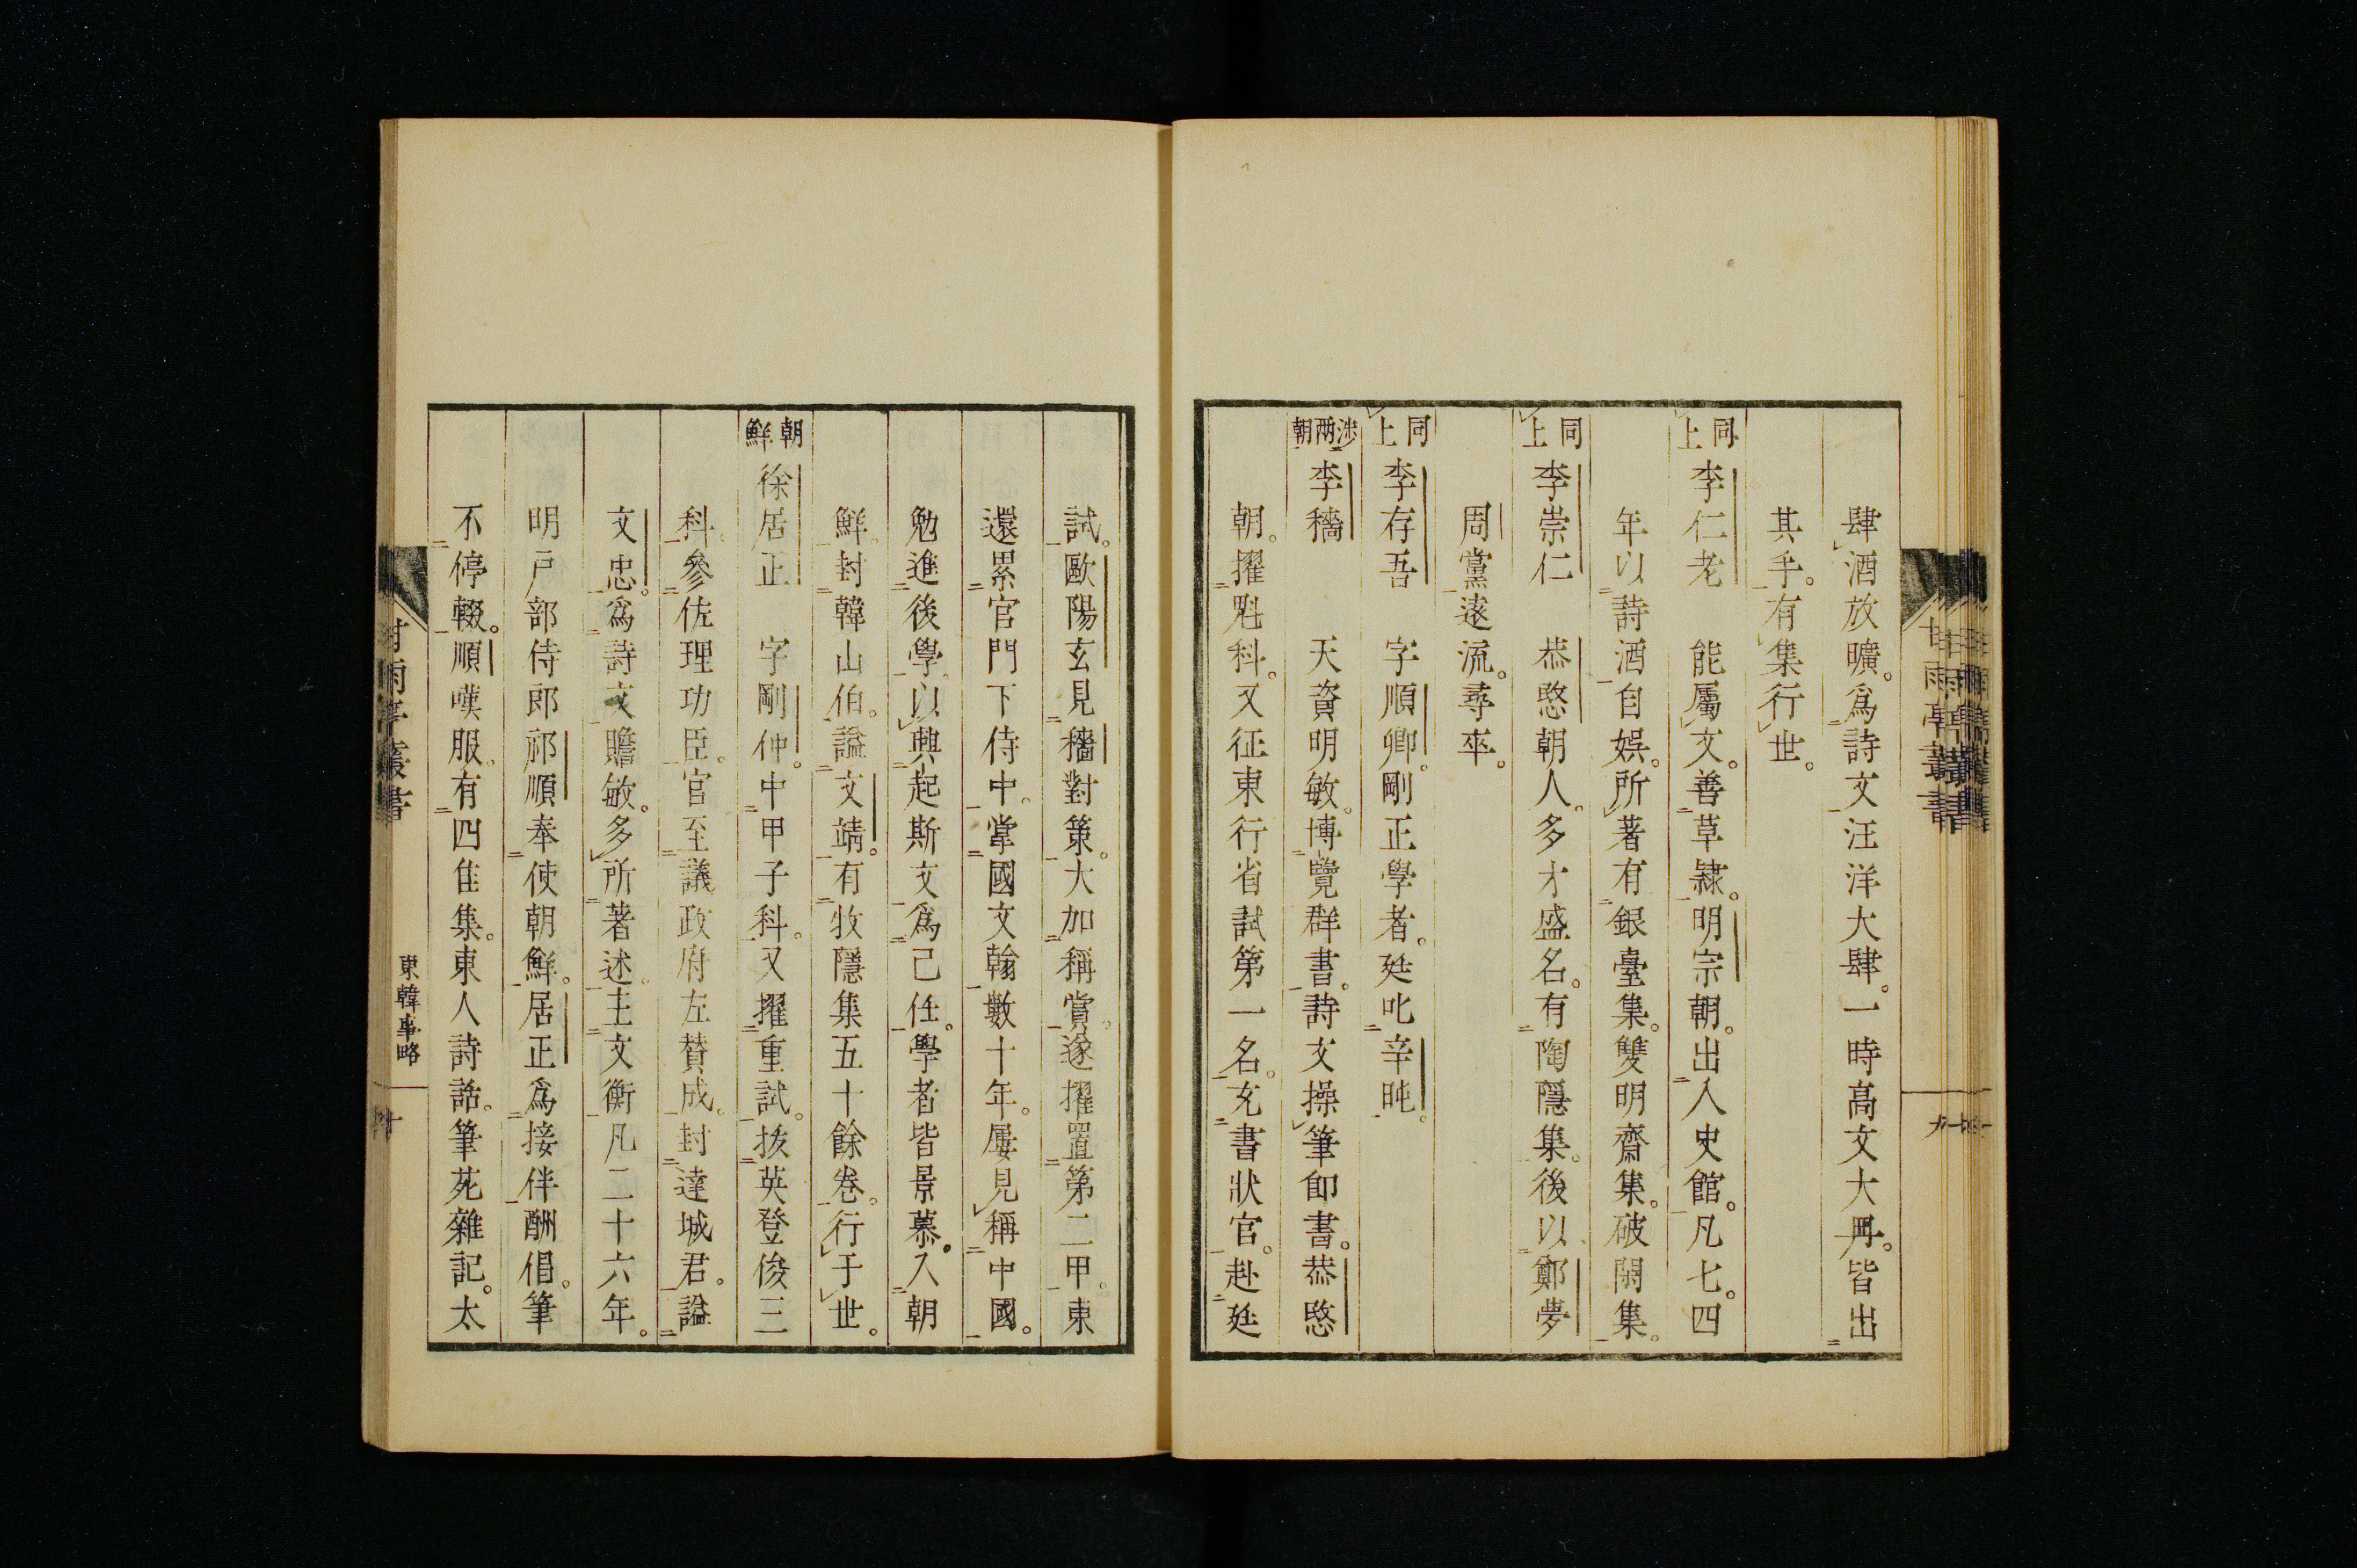 肆酒放曠。爲詩文汪洋大肆。一時高文大冊。皆出
其手。有集行世。
同上 李仁老 能屬文。善草隷。明宗朝。出入史館。凡七。四
年以詩酒自娯。所著有銀臺集。雙明齋集。破閑集。
同上 李崇仁 恭愍朝人。多才盛名。有陶隱集。後以鄭夢
周黨遠流。尋卒。
同上 李存吾 字順卿。剛正學者。廷叱辛旽。
涉兩朝 李穡 天資明敏。博覽群書。詩文操筆即書。恭愍
朝。擢魁科。又征東行省試第一名。充書狀官。赴廷
試。歐陽玄見穡對策。大加稱賞。遂擢置第二甲。東
還累官門下侍中。掌國文翰數十年。屢見稱中國。
勉進後學。以興起斯文爲己任。學者皆景慕。入朝
鮮。封韓山伯。諡文靖。有牧隱集五十餘卷。行于世。
朝鮮 徐居正 字剛仲。中甲子科。又擢重試。拔英登俊三
科。參佐理功臣。官至議政府左賛成。封達城君。諡
文忠。爲詩文贍敏。多所著述。主文衡凡二十六年。
明戸部侍郎祁順奉使朝鮮。居正爲接伴酬倡。筆
不停輟。順嘆服。有四佳集。東人詩話。筆苑雜記。太
東韓事略